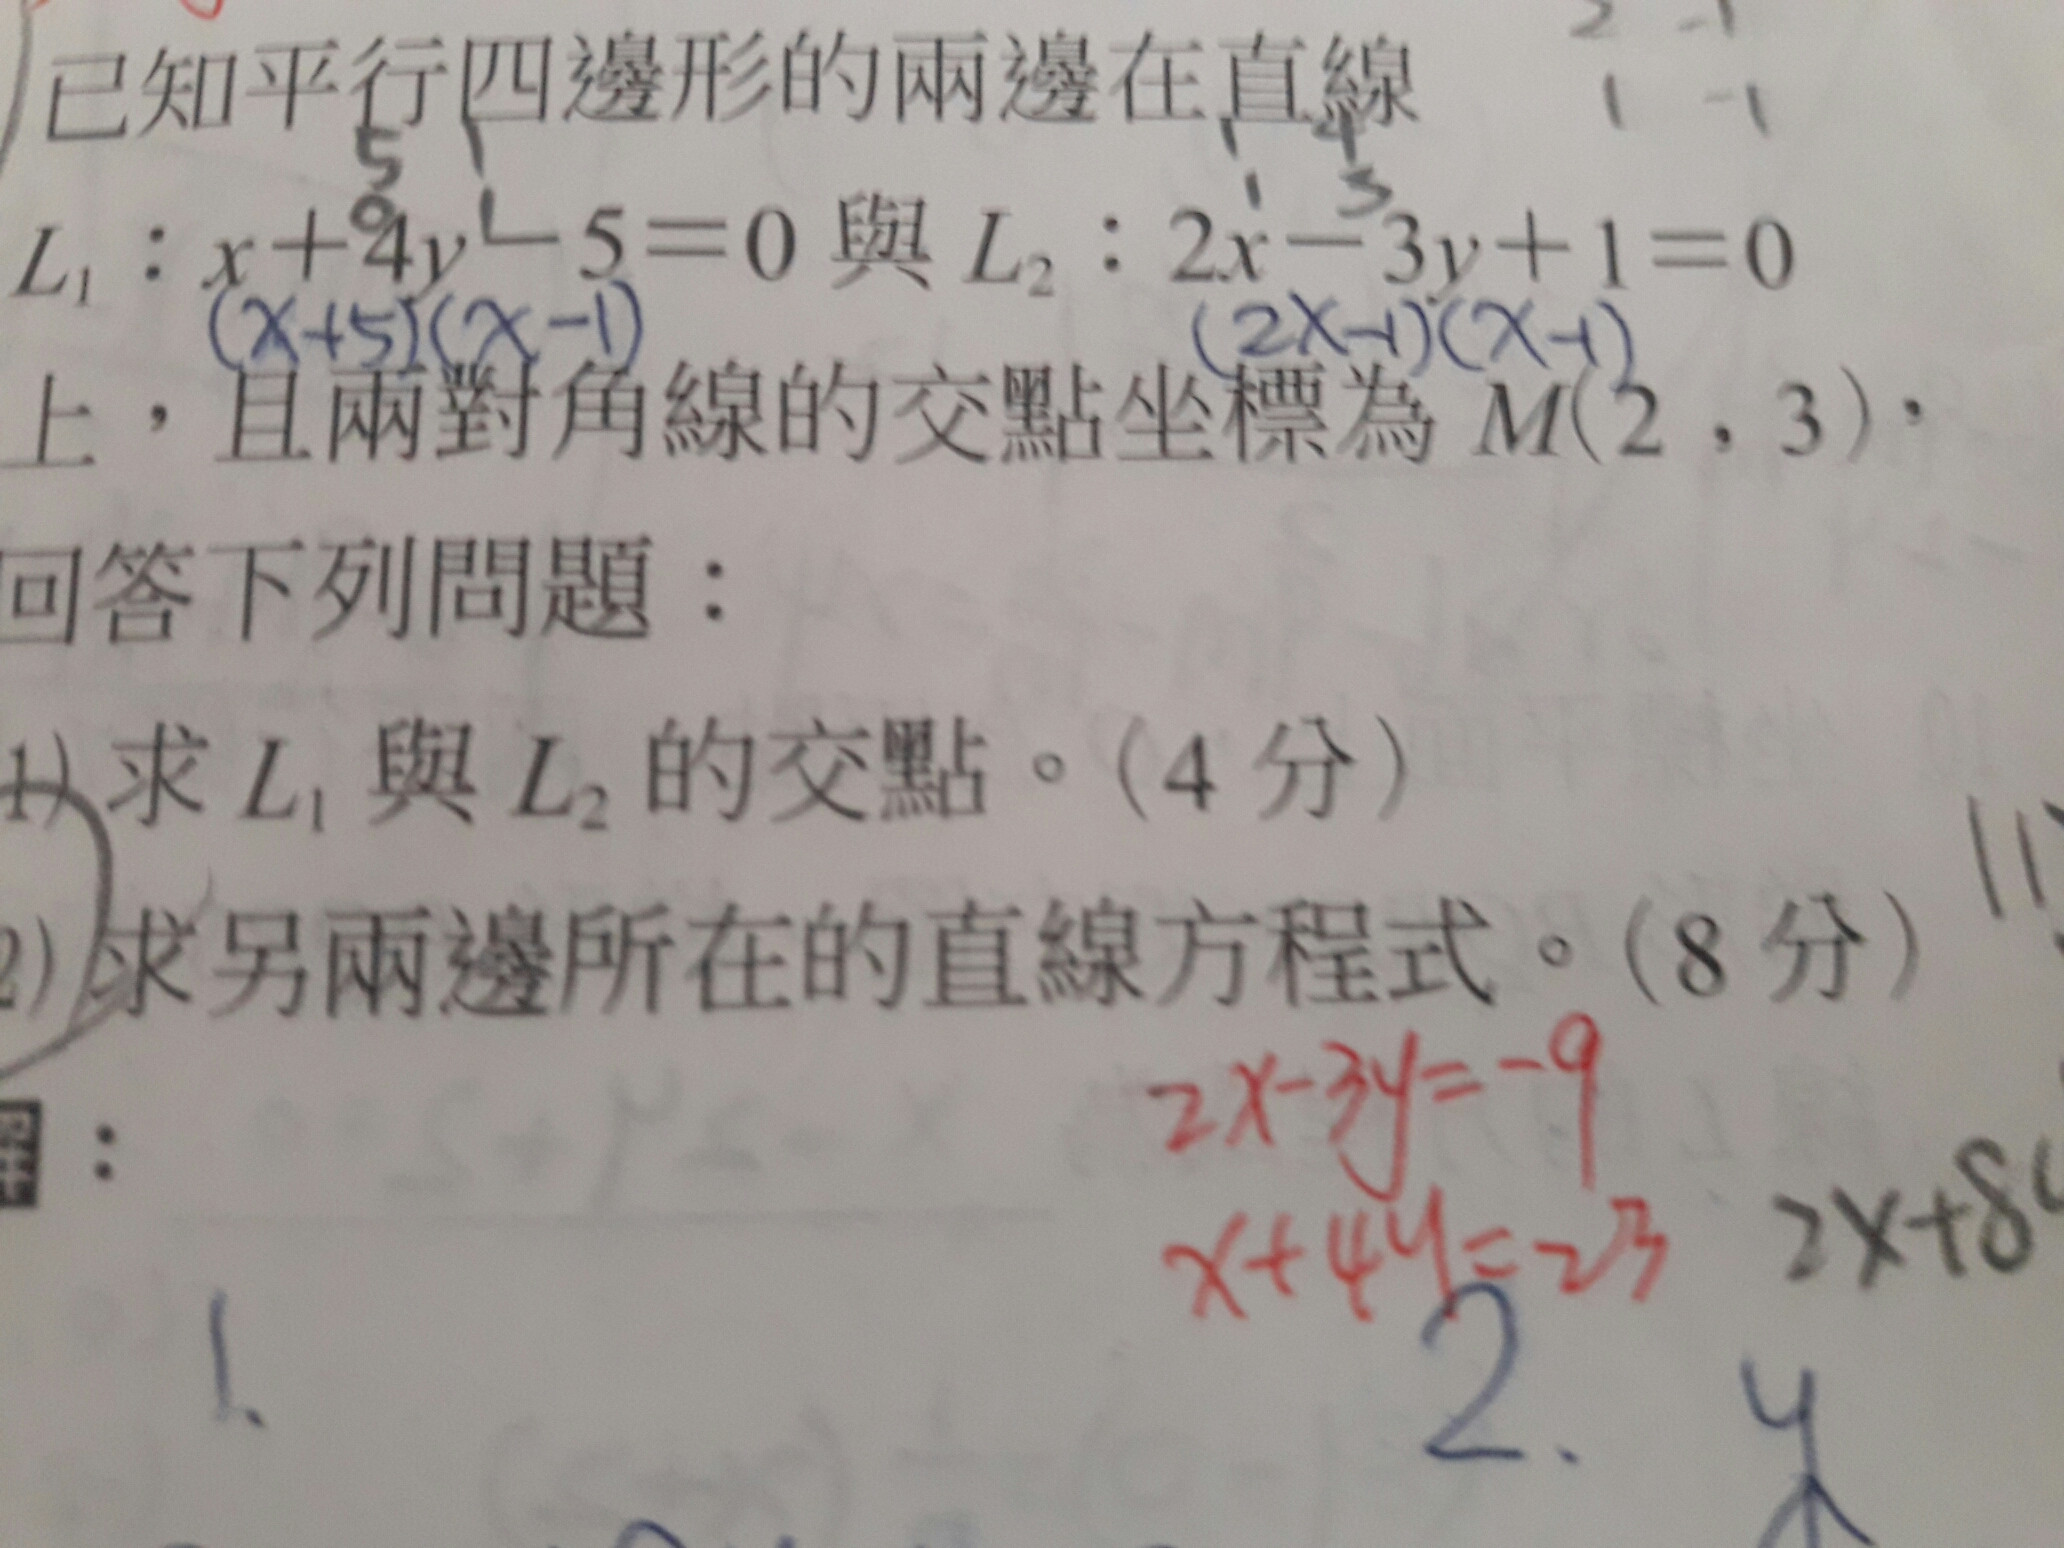 2 -1
已知平行四邊形的兩邊在直線
1 -1
5 1 1 4
1 3
L₁：x＋4y－5＝0 與 L₂：2x－3y＋1＝0
(x+5)(x-1) (2x-1)(x-1)
上，且兩對角線的交點坐標為 M(2，3)，
回答下列問題：
1) 求 L₁ 與 L₂ 的交點。(4 分)
2) 求另兩邊所在的直線方程式。(8 分)
11
2x-3y=-9
：
x+4y=23
2x+8y
1.
2.
y